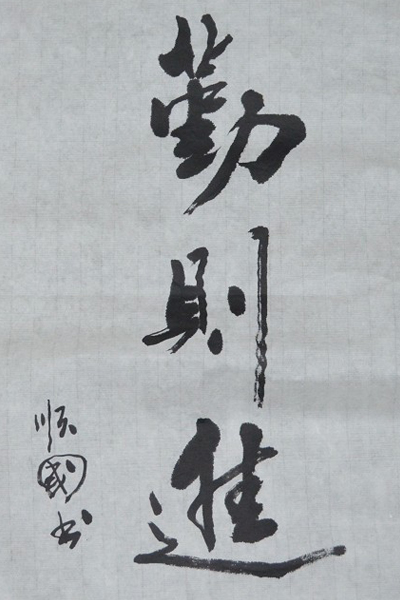 勤則進
順國书